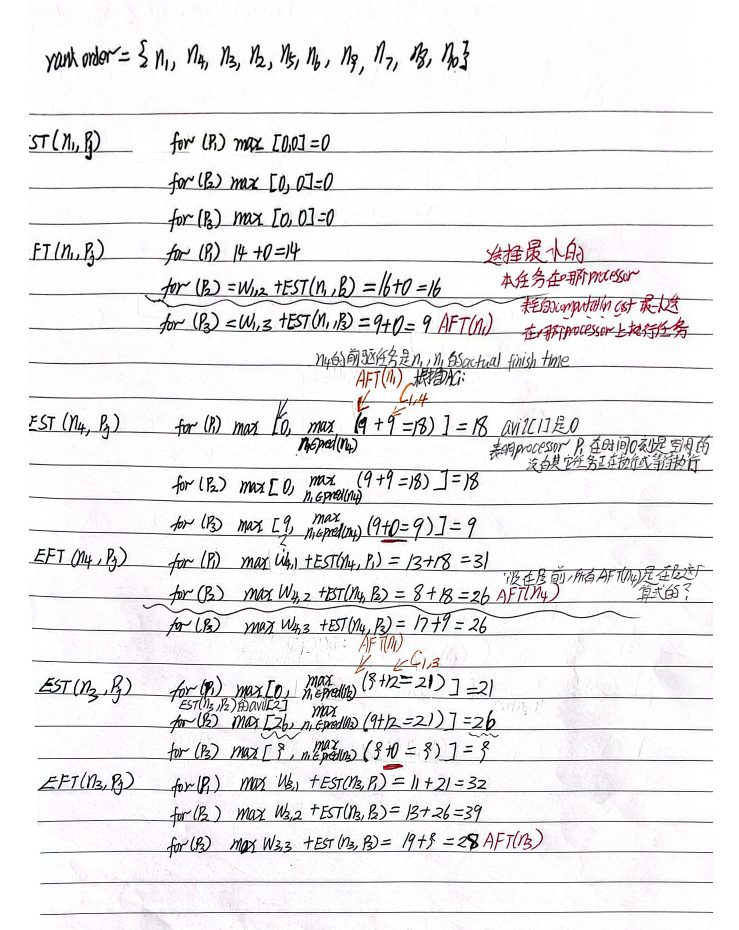 rank order = { n₁, n₄, n₃, n₂, n₅, n₆, n₉, n₇, n₈, n₁₀}
ST(n₁, Pj) for (P₁) max [0,0] = 0
for (P₂) max [0, 0] = 0
for (P₃) max [0, 0] = 0
FT(n₁, Pj) for (P₁) 14 + 0 = 14
选择最小的
for (P₂) = W₁,₂ + EST(n₁, P₂) = 16 + 0 = 16
本任务在哪所processor
耗的computation cost 最小选
for (P₃) = W₁,₃ + EST(n₁, P₃) = 9 + 0 = 9 AFT(n₁)
在哪所processor上执行任务
n₄的前驱任务是n₁, n₁的actual finish time
AFT(n₁) 根据DAG:
C₁,₄
EST (n₄, Pj) for (P₁) max [0, max n₁∈pred(n₄) (9 + 9 = 18) ] = 18 avil[1]是0
表明processor P₁ 在时间0刻是空闲的
没有其它任务正在执行或等待执行
for (P₂) max [ 0, max n₁∈pred(n₄) (9 + 9 = 18) ] = 18
for (P₃) max [9, max n₁∈pred(n₄) (9+0 = 9) ] = 9
EFT (n₄, Pj) for (P₁) max W₄,₁ + EST(n₄, P₁) = 13 + 18 = 31
for (P₂) max W₄,₂ + EST(n₄, P₂) = 8 + 18 = 26 AFT(n₄)
P₂在P₃前,所有AFT(n₄)是在P₂这个
算式的?
for (P₃) max W₄,₃ + EST(n₄, P₃) = 17 + 9 = 26
AFT(n₁)
C₁,₃
EST(n₃, Pj) for (P₁) max [0, max n₁∈pred(n₃) (9+12 = 21) ] = 21
EST(n₃, P₂)的avil[2]
for (P₂) max [26, max n₁∈pred(n₃) (9+12 = 21) ] = 26
for (P₃) max [ 9, max n₁∈pred(n₃) (9+0 = 9) ] = 9
EFT(n₃, Pj) for (P₁) max W₃,₁ + EST(n₃, P₁) = 11 + 21 = 32
for (P₂) max W₃,₂ + EST(n₃, P₂) = 13 + 26 = 39
for (P₃) max W₃,₃ + EST (n₃, P₃) = 19 + 9 = 28 AFT(n₃)